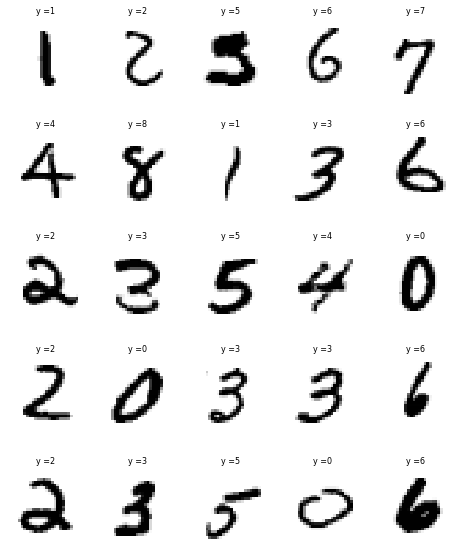 y =1 y =2 y =5 y =6 y =7
1 2 5 6 7
y =4 y =8 y =1 y =3 y =6
4 8 1 3 6
y =2 y =3 y =5 y =4 y =0
2 3 5 4 0
y =2 y =0 y =3 y =3 y =6
2 0 3 3 6
y =2 y =3 y =5 y =0 y =6
2 3 5 0 6